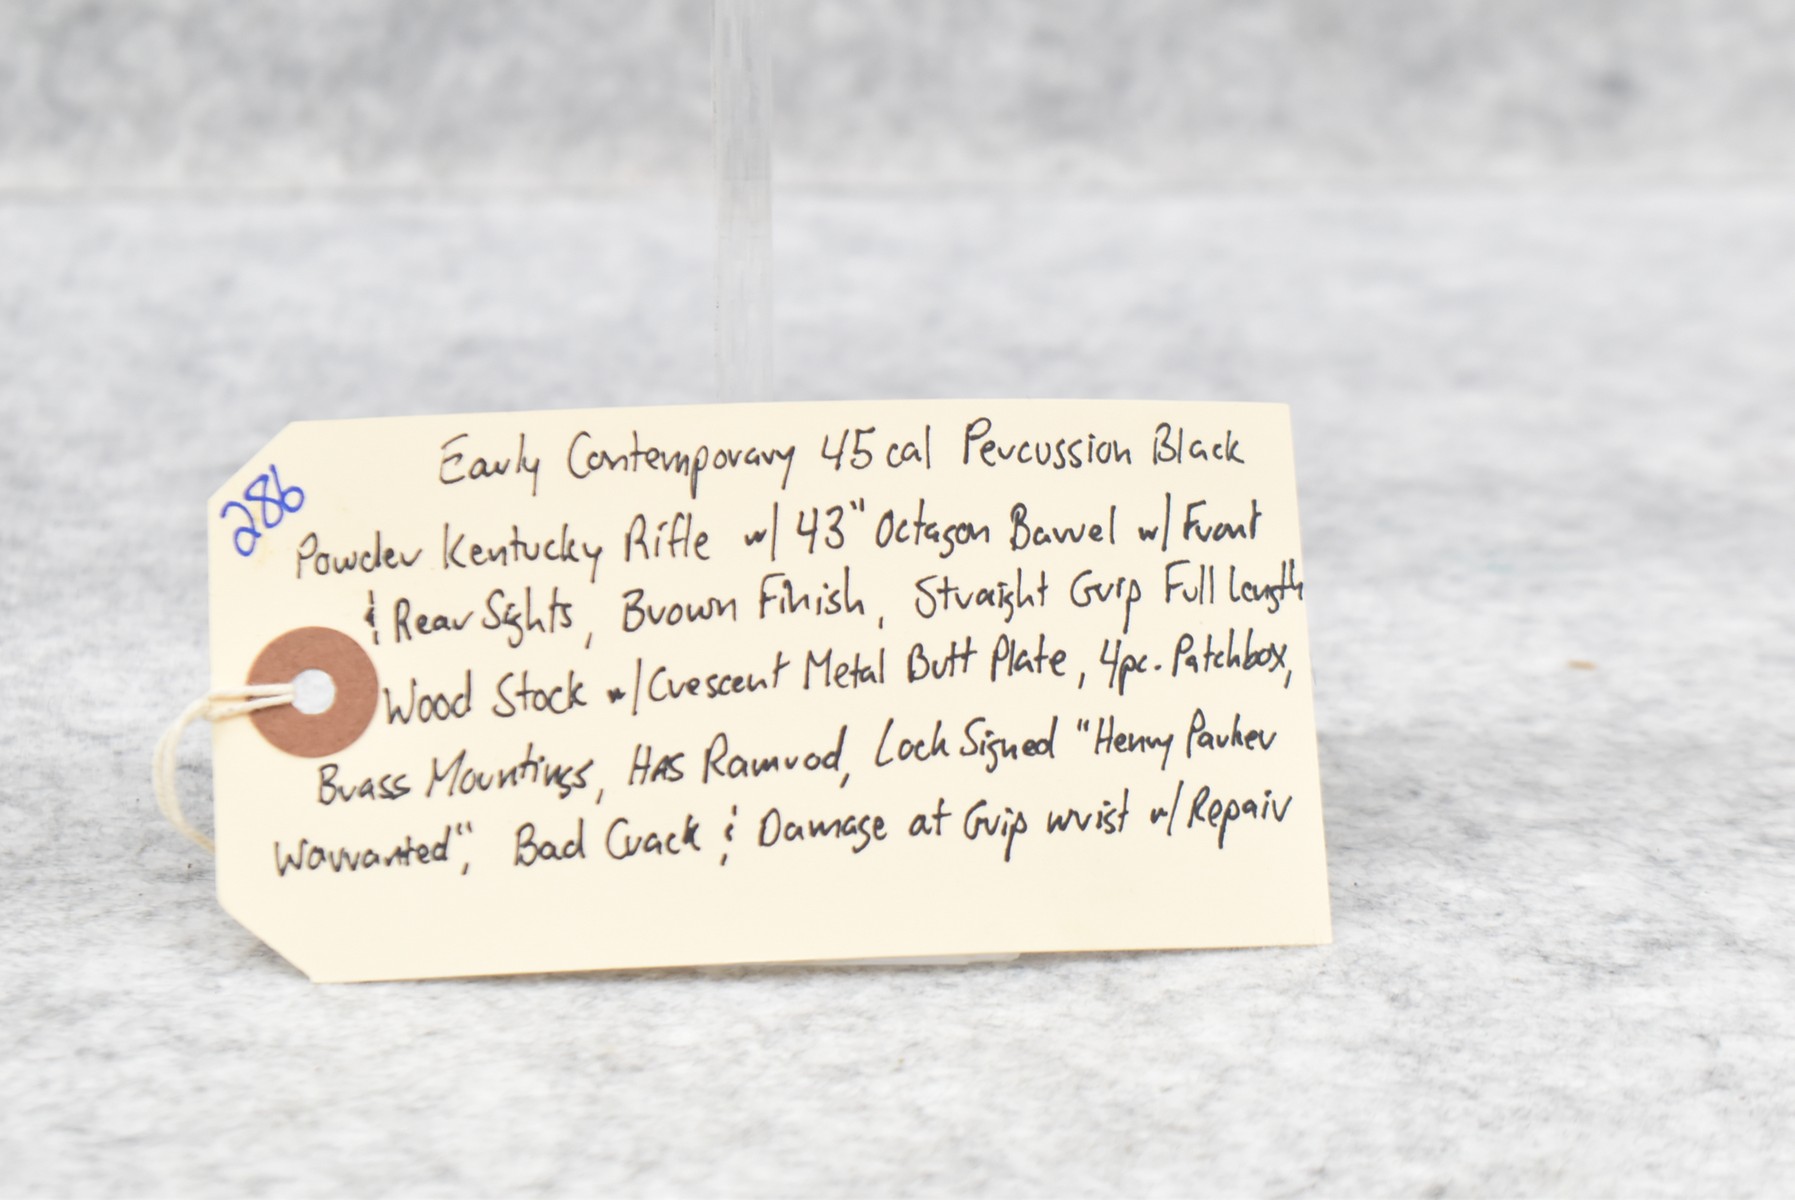 286
Early Contemporary 45 cal Percussion Black
Powder Kentucky Rifle w/ 43" Octagon Barrel w/ Front
& Rear Sights, Brown Finish, Straight Grip Full Length
Wood Stock w/ Crescent Metal Butt Plate, 4pc. Patchbox,
Brass Mountings, Has Ramrod, Lock Signed "Henry Parker
Warranted", Bad Crack & Damage at Grip wrist w/ Repair